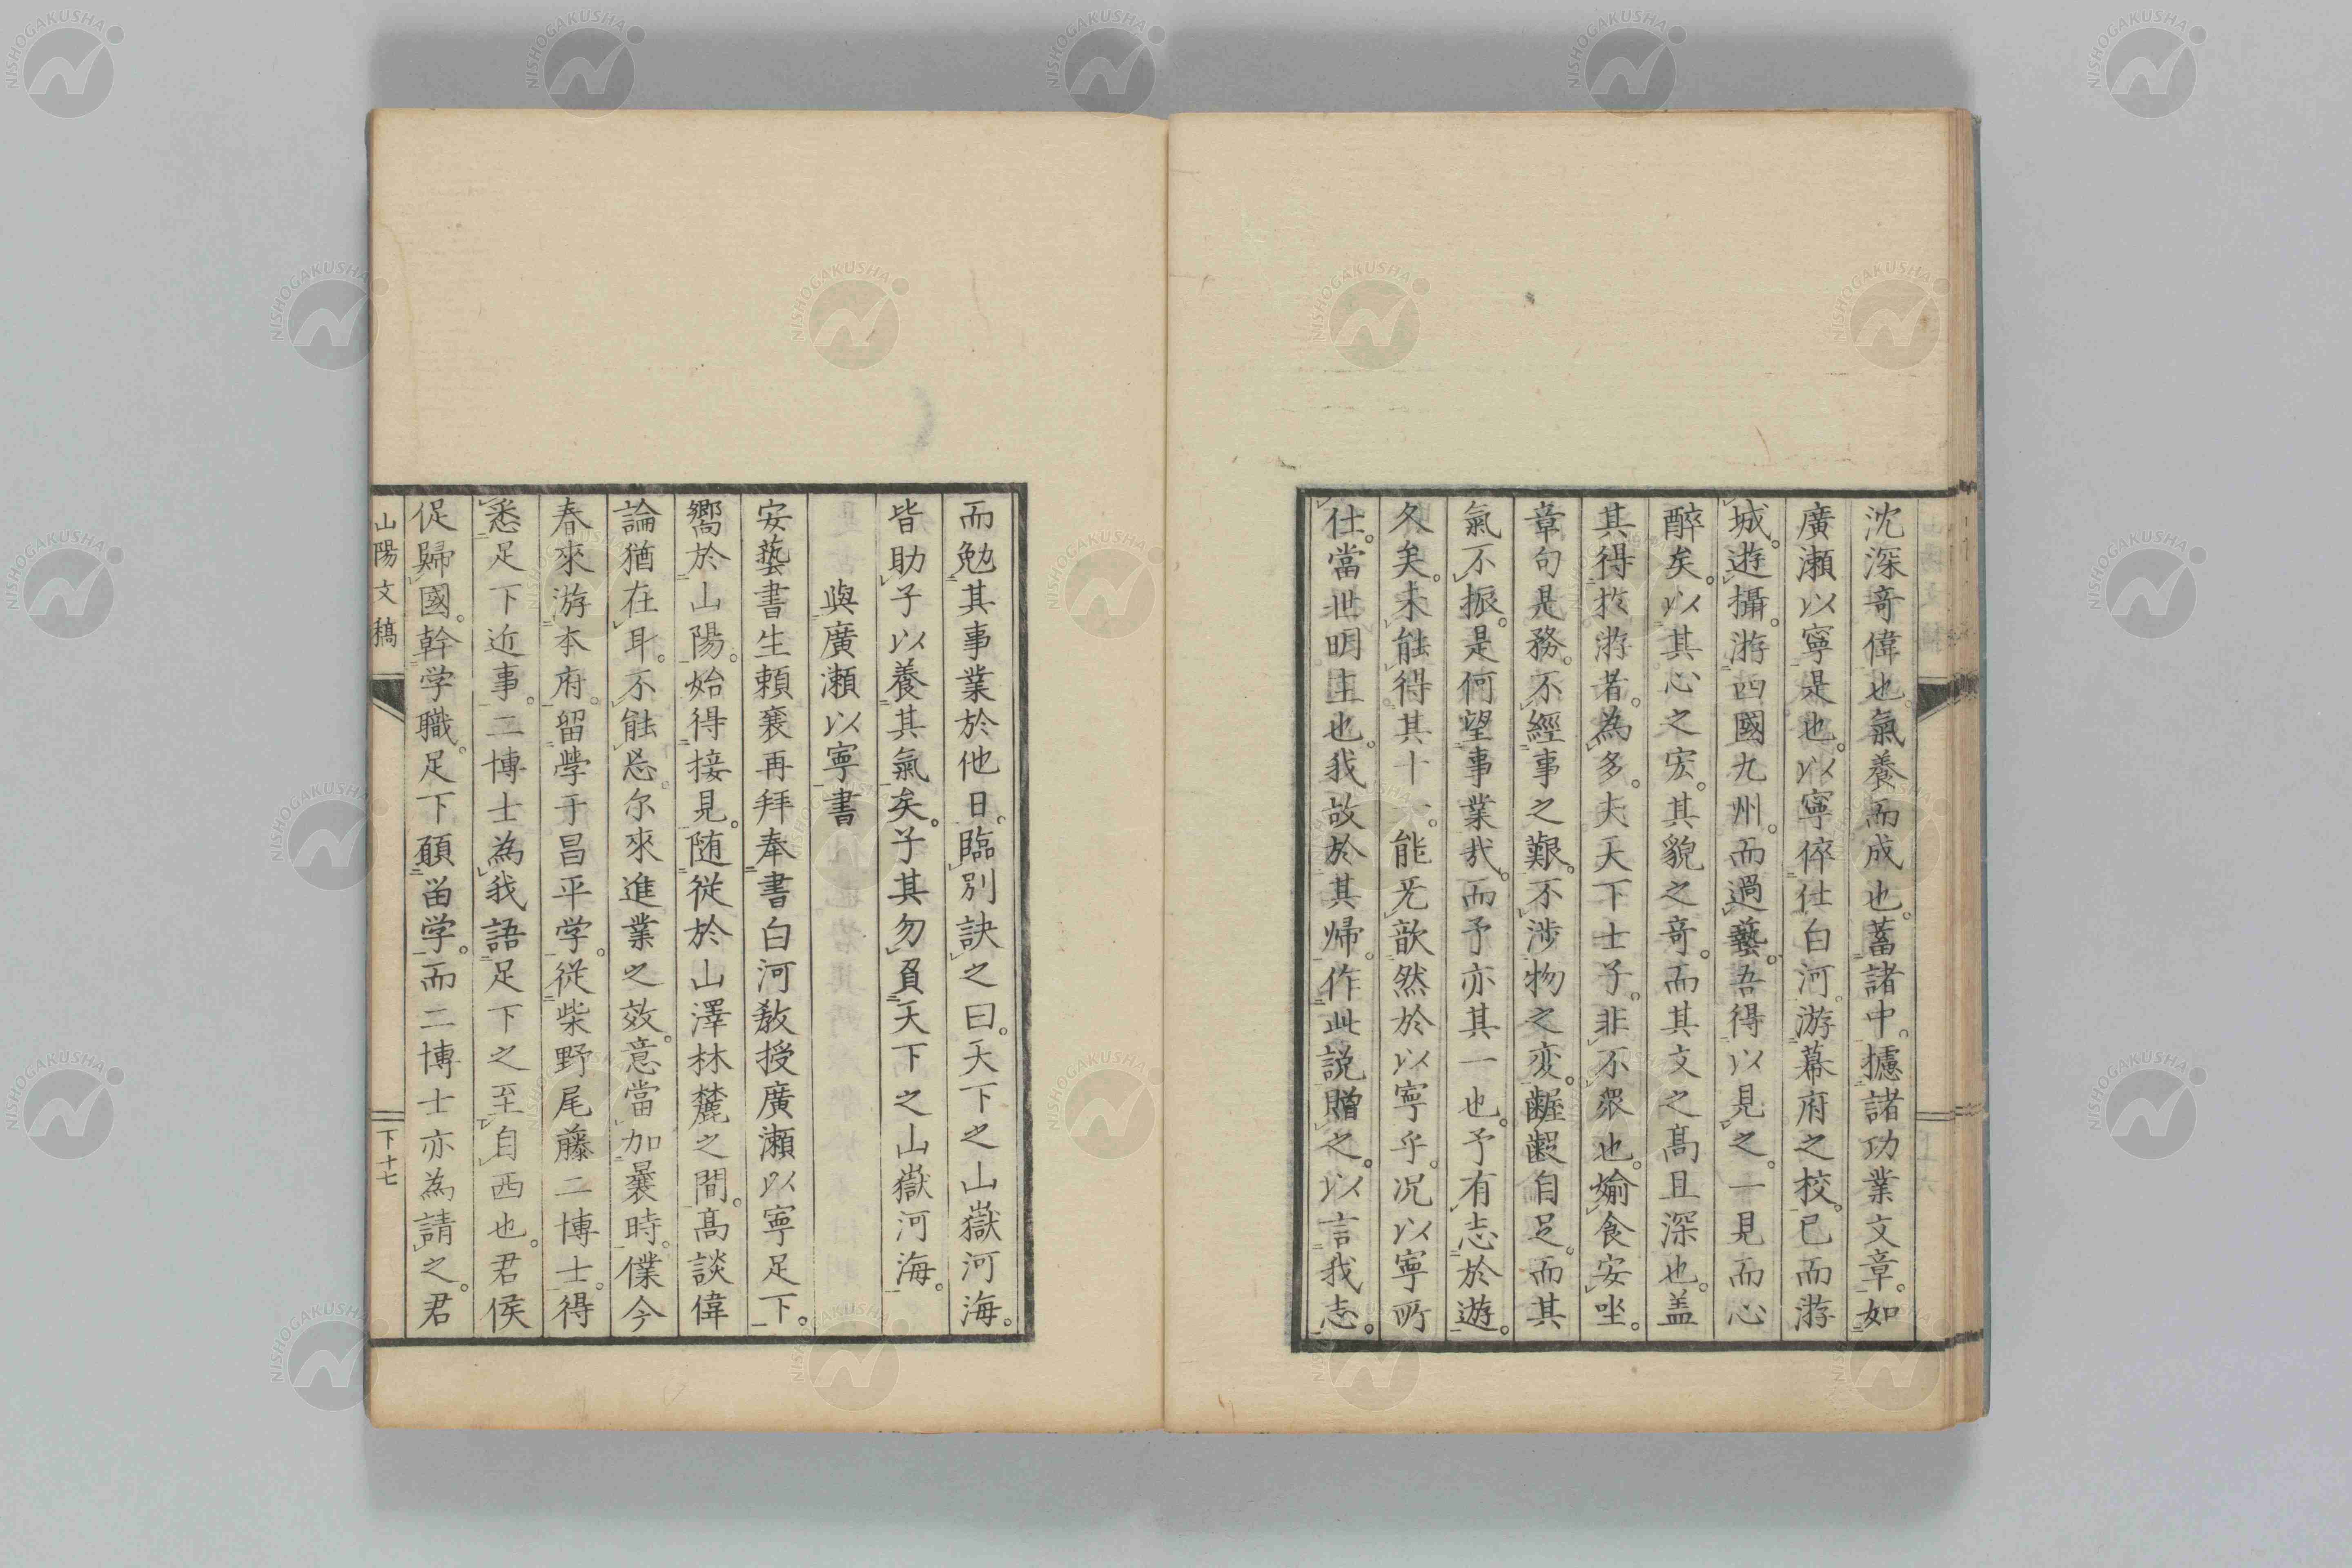 沈深奇偉也氣養而成也。蓄諸中。攄諸功業文章。如
廣瀬以寧是也。以寧倅仕白河。游幕府之校。已而游
城。遊攝。游四國九州。而過藝。吾得以見之。一見而心
醉矣。以其心之宏。其貌之奇。而其文之髙且深也。盖
其得於游者。為多。夫天下士子。非不衆也。媮食安坐。
章句是務。不經事之艱。不渉物之変。齷齪自足。而其
氣不振。是何望事業哉。而予亦其一也。予有志於遊。
久矣。未能得其十一。能旡歆然於以寧乎。况以寧所
仕。當世明主也。我故於其帰。作此説贈之。以言我志。
而勉其事業於他日。臨別訣之曰。天下之山嶽河海。
皆助子以養其氣矣。子其勿負天下之山嶽河海。
與廣瀬以寧書
安藝書生頼襄再拜奉書白河教授廣瀬以寧足下。
嚮於山陽。始得接見。随従於山澤林麓之間。髙談偉
論猶在耳。不能忘。尓來進業之效。意當加曩時。僕今
春來游本府。留學于昌平学。従柴野尾藤二博士。得
悉足下近事。二博士為我語足下之至自西也。君侯
促歸國。幹学職。足下願留学。而二博士亦為請之。君
山陽文稿
下十七
NISHOGAKUSHA